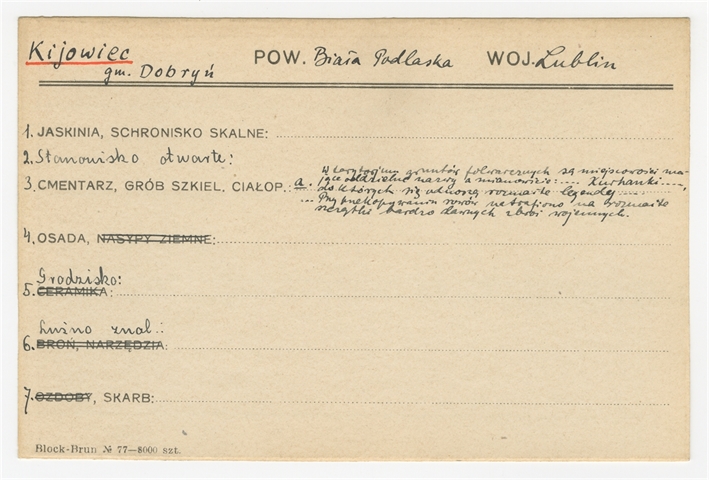 Kijowiec
gm. Dobryń
POW. Biała Podlaska
WOJ. Lublin
1. JASKINIA, SCHRONISKO SKALNE:
2. Stanowisko otwarte:
3. CMENTARZ, GRÓB SZKIEL. CIAŁOP.: a.
W terytorjum gruntów folwarcznych są miejscowości ma-
jące oddzielne nazwy a mianowicie: .... Kurhanki ....,
do których się odnoszą rozmaite legendy ....
... Przy przekopywaniu rowów natrafiono na rozmaite
szczątki bardzo dawnych zbroi wojennych.
4. OSADA, NASYPY ZIEMNE:
Grodzisko:
5. CERAMIKA:
Luźno znal.:
6. BROŃ, NARZĘDZIA:
7. OZDOBY, SKARB:
Block-Brun № 77—8000 szt.